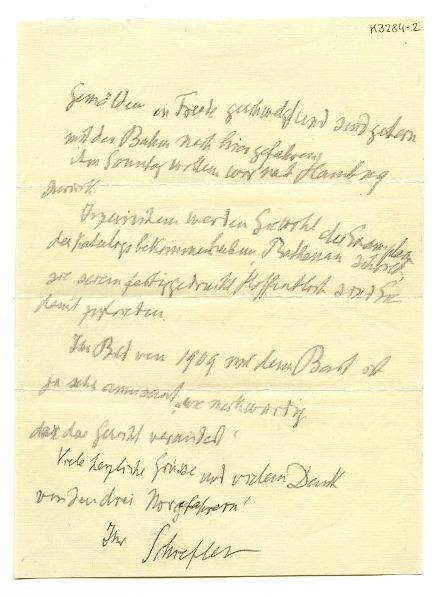 K3284-2
Gemälden in Freude geschwelgt und sind gestern
mit der Bahn nach hier gefahren
Am Sonntag wollen wir nach Hamburg
zurück.
Inzwischen werden Sie wohl die Exemplare
des Katalogs bekommen haben, Rathenau schrieb,
sie seien fertig gedruckt. Hoffentlich sind Sie
damit zufrieden.
Ihr Bild von 1909 mit dem Bart ist
ja sehr amüsant, wie merkwürdig
das Gesicht verändert!
Viele herzliche Grüsse und vielen Dank
von den drei
Ihr Schiefler